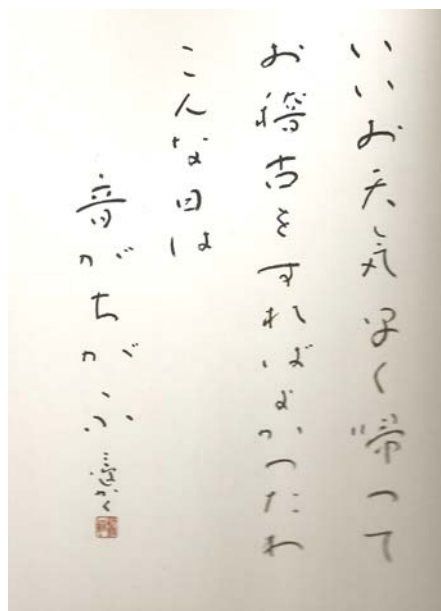 いいお天気早く帰って
お稽古をすればよかったわ
こんな日は
音がちがふ